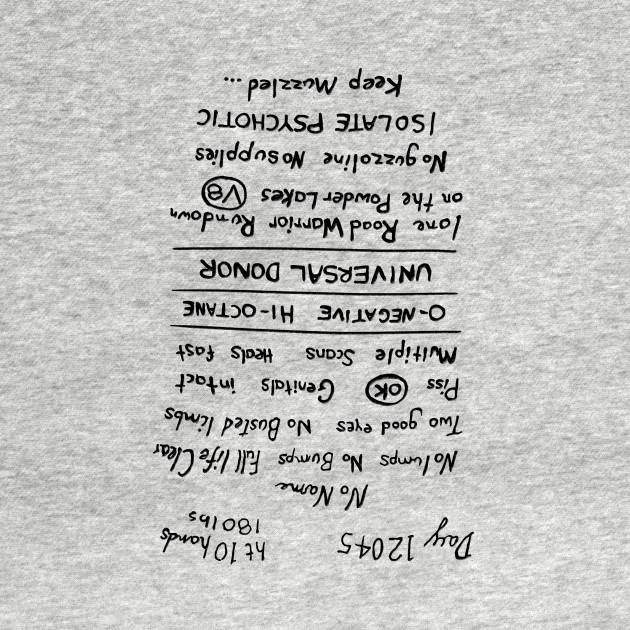 Day 12045
ht 10 hands
180 lbs
No Name
No lumps No Bumps Full life Clear
Two good eyes No Busted limbs
Piss OK Genitals intact
Multiple Scans Heals fast
O-NEGATIVE HI-OCTANE
UNIVERSAL DONOR
lone Road Warrior Rundown
on the Powder Lakes V8
No guzzoline No supplies
ISOLATE PSYCHOTIC
Keep Muzzled...